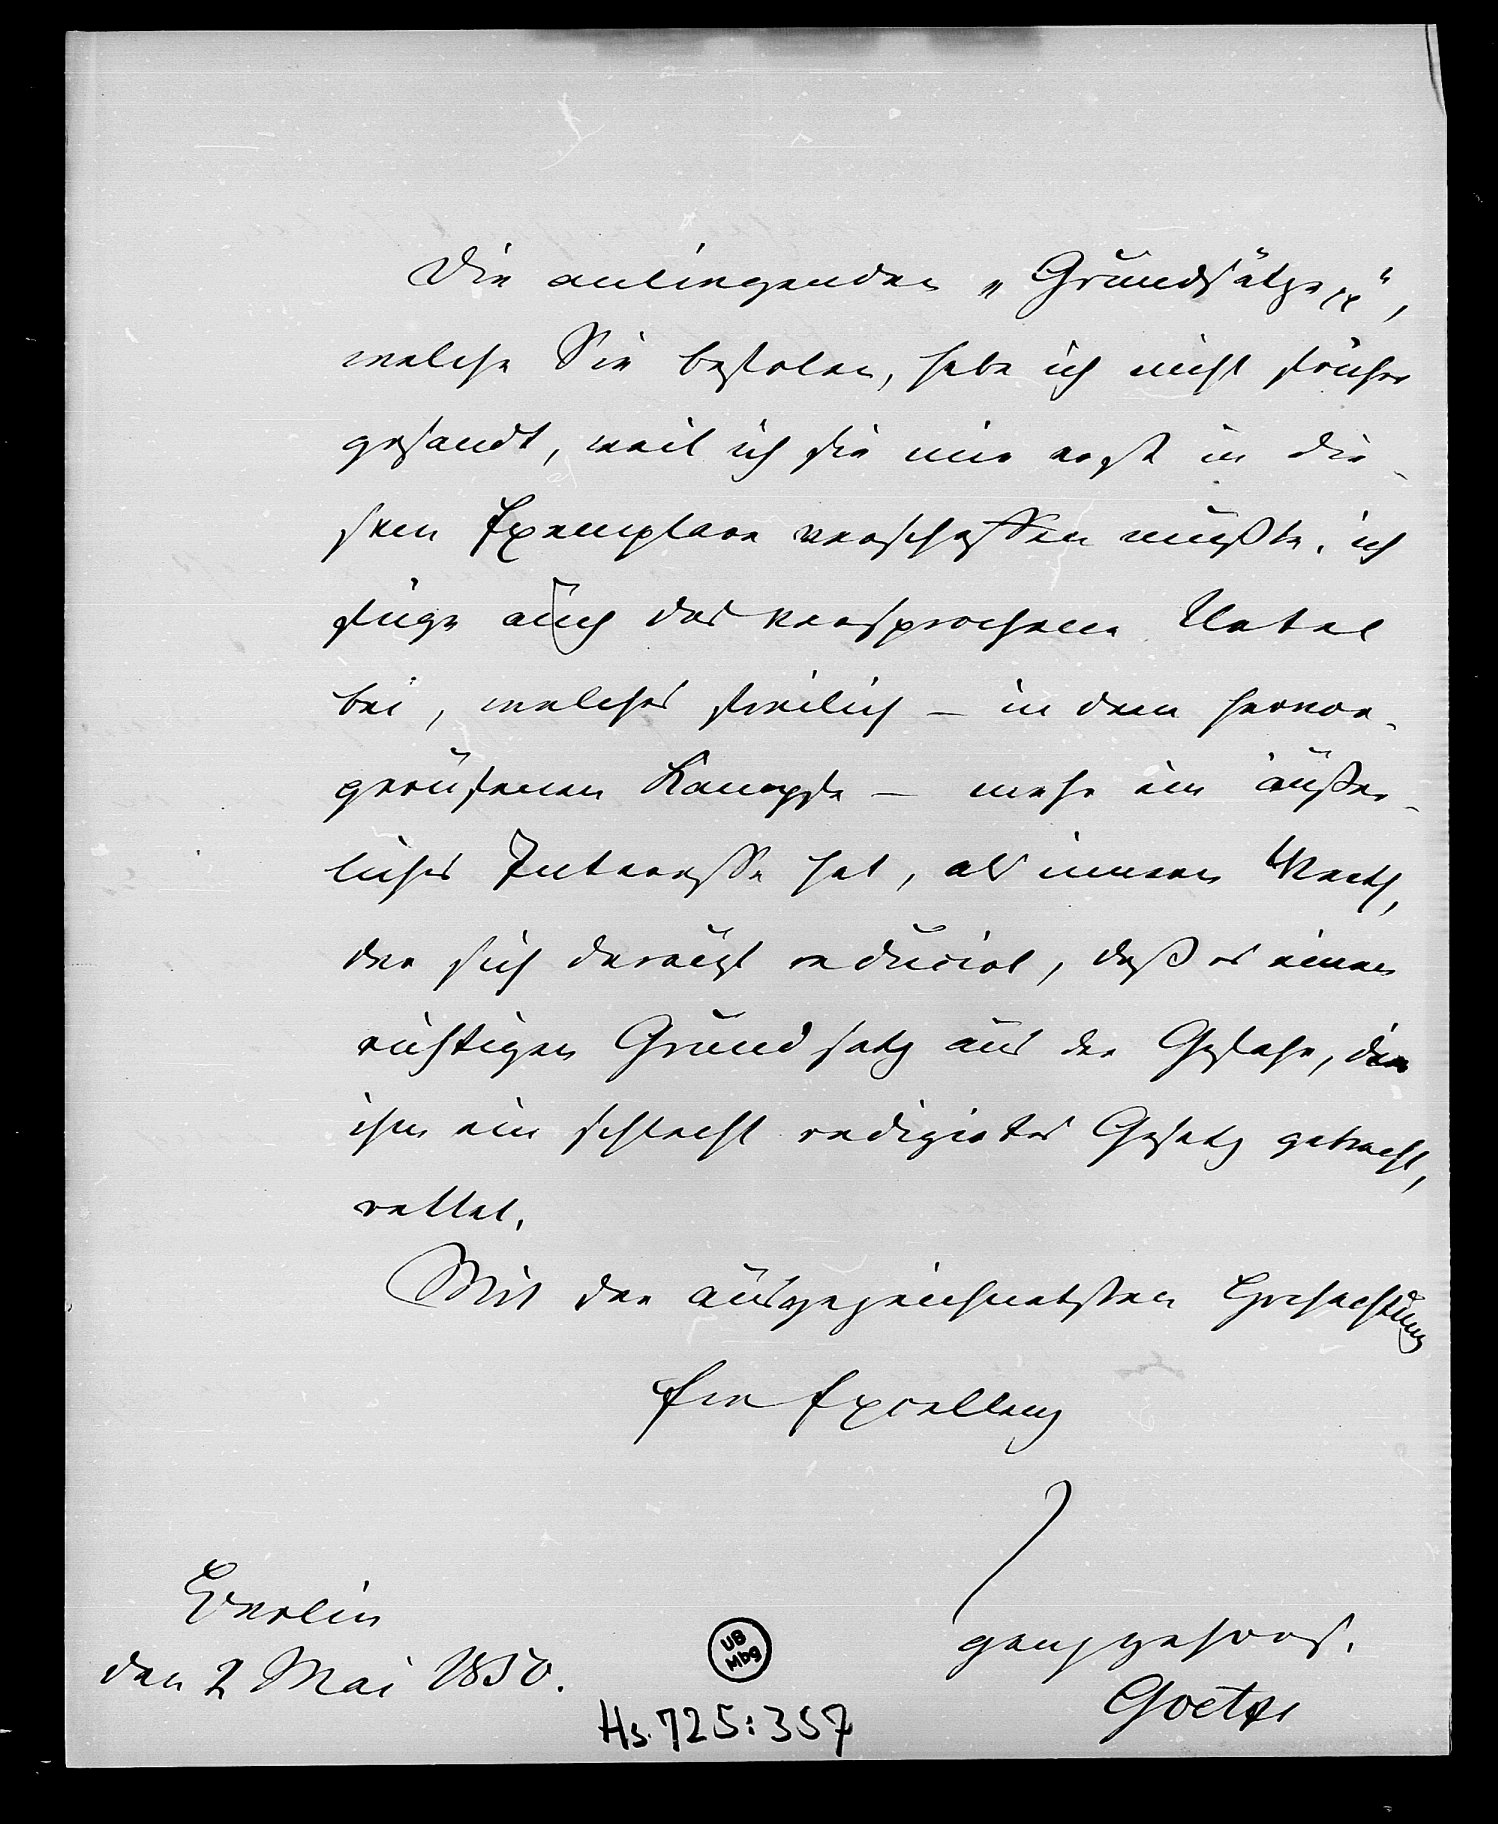 Die anliegenden „Grundsätze pp“,
welche Sie befolen, habe ich nicht früher
gesandt, weil ich sie mir erst in die-
sem Exemplare verschaffen mußte. ich
füge auch das versprochene Urtel
bei, welches freilich – in dem hervor-
gerufenen Kampfe – mehr ein äußer-
liches Interesse hat, als innern Werth,
der sich darauf reducirt, daß es einen
richtigen Grundsatz aus der Gefahr, die
ihm ein schlecht redigirtes Gesetz gebracht,
rettet.
Mit der ausgezeichnetsten Hochachtung
Ew Excellenz
ganz gehors.
Goetze
Berlin
den 2 Mai 1850.
UB
Mbg
Hs. 725:357